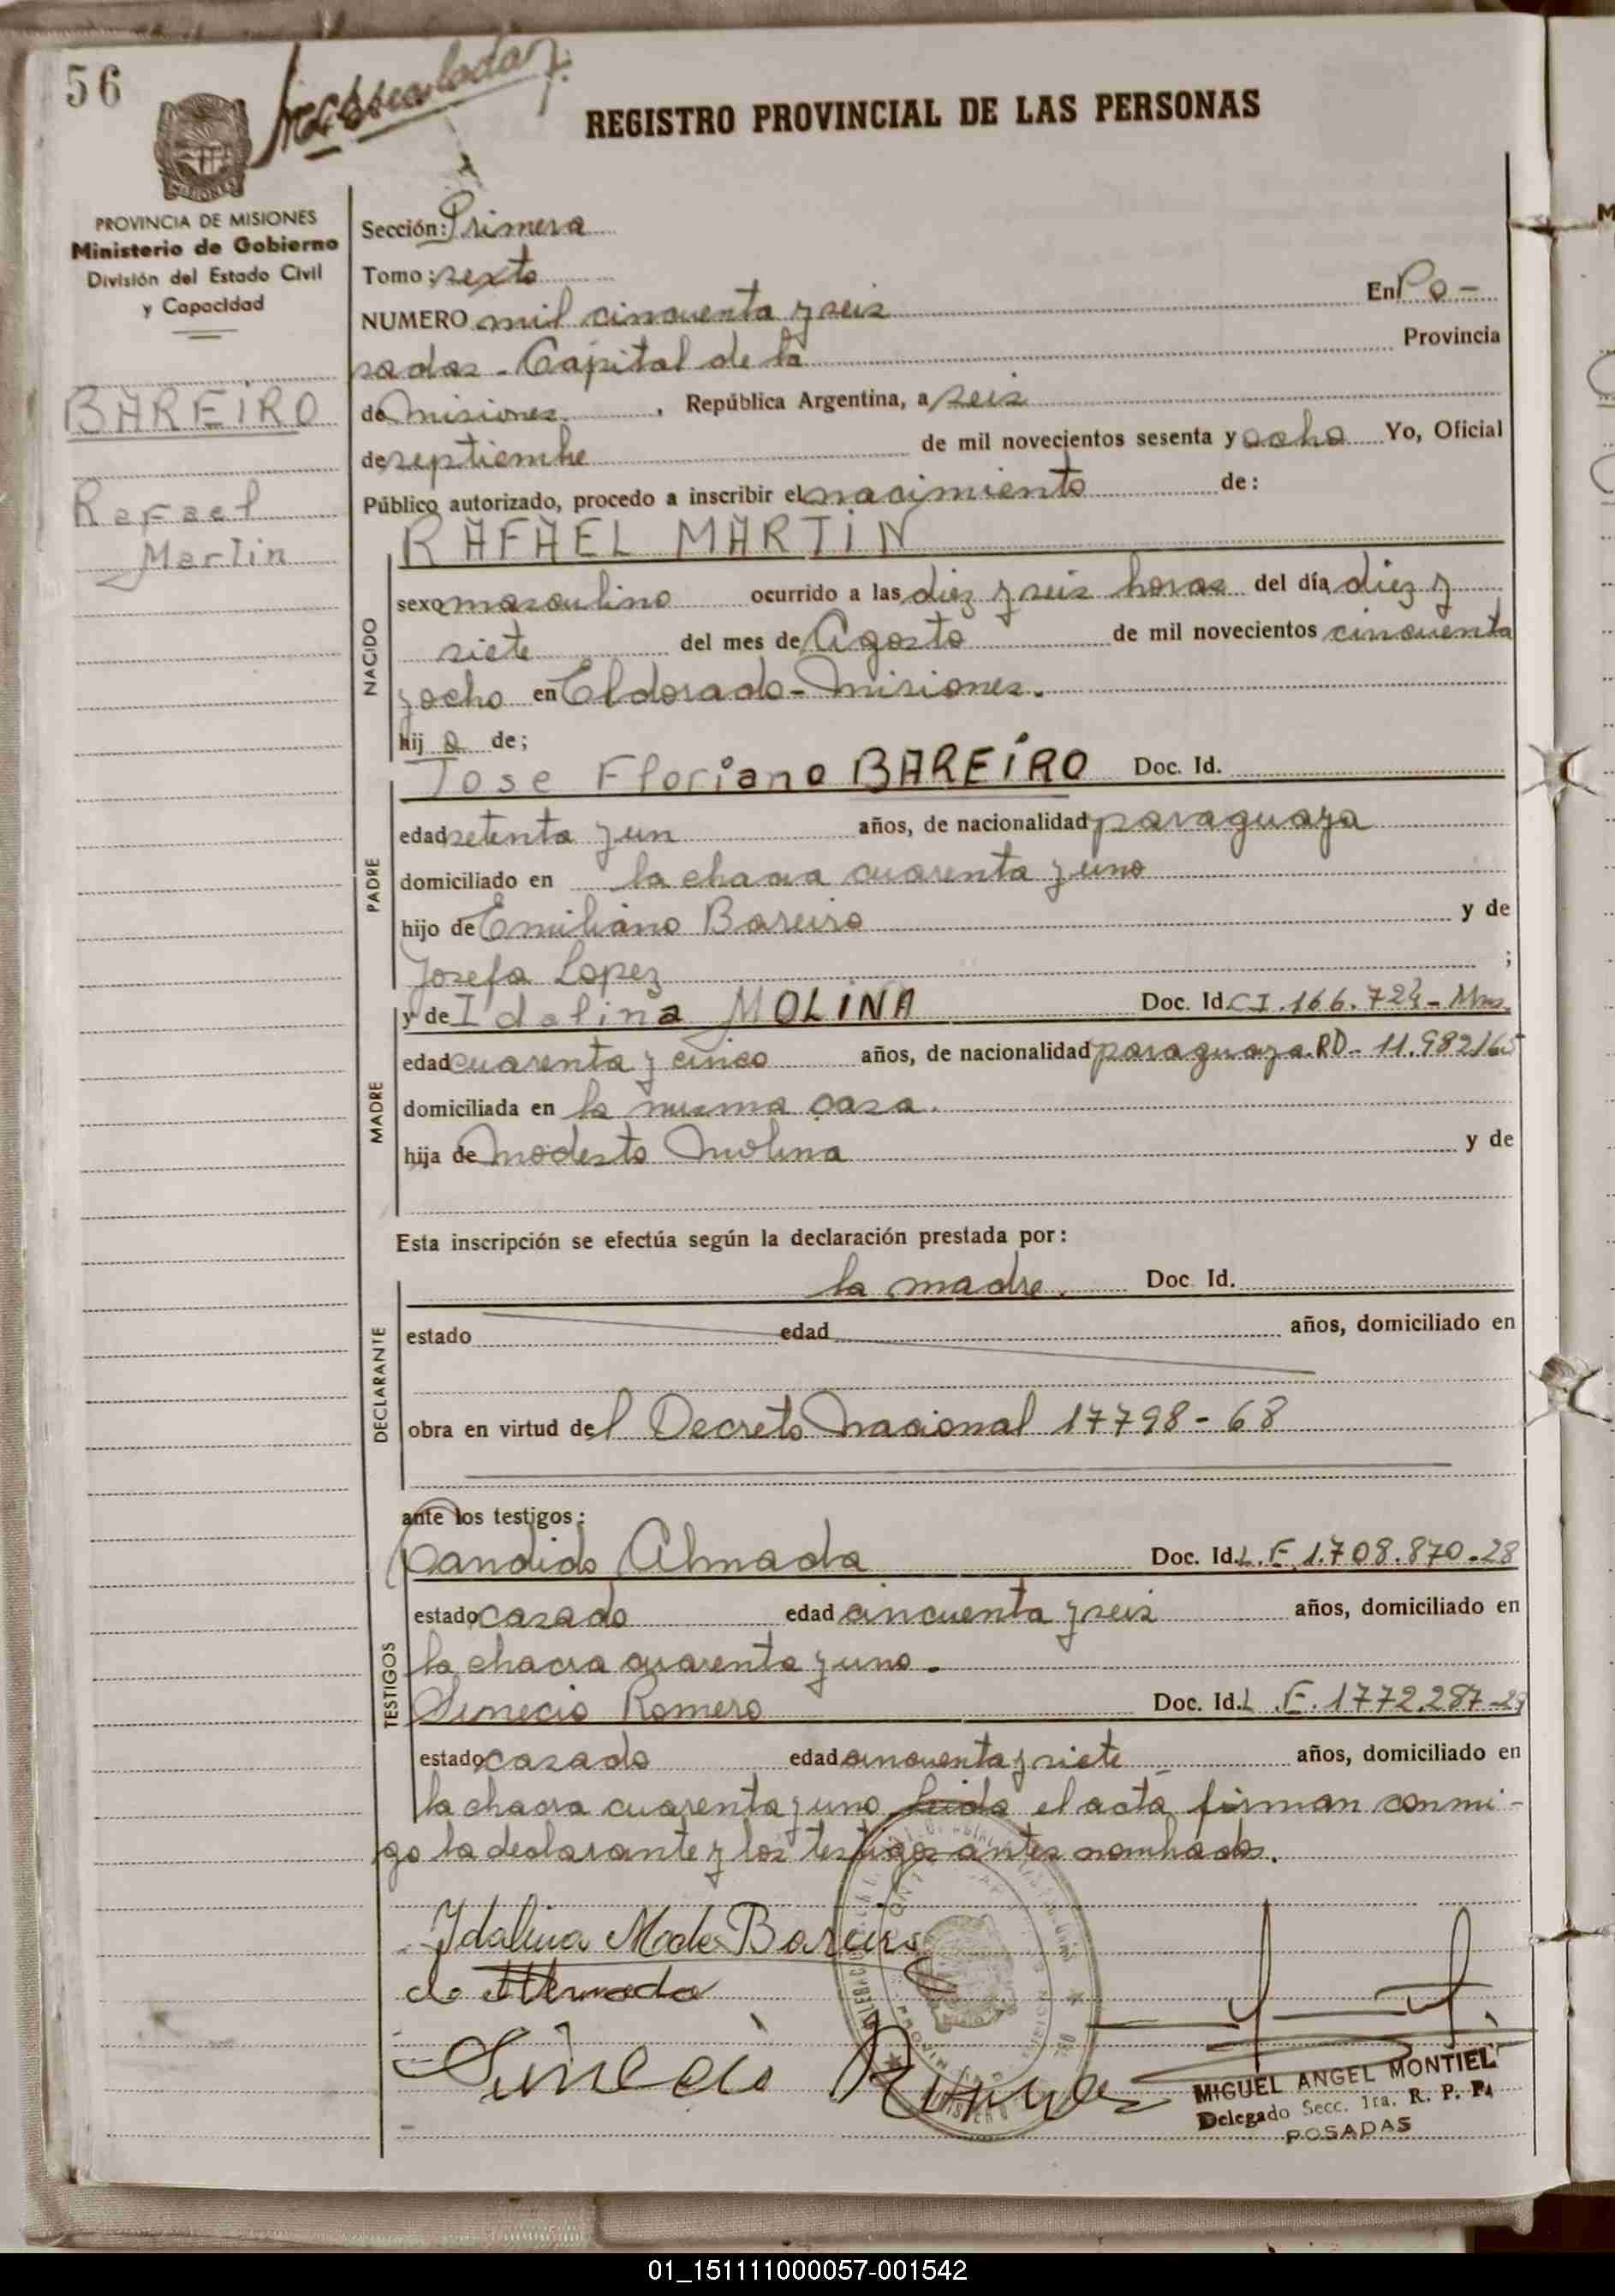 56
REGISTRO PROVINCIAL DE LAS PERSONAS
PROVINCIA DE MISIONES
Ministerio de Gobierno
División del Estado Civil
y Capacidad
BAREIRO
Rafael
Martin
Sección: Primera
Tomo: sexto
NUMERO mil cincuenta y seis En Po-
sadas - Capital de la Provincia
de misiones, República Argentina, a seis
de septiembre de mil novecientos sesenta y ocho Yo, Oficial
Público autorizado, procedo a inscribir el nacimiento de:
NACIDO
RAFAEL MARTIN
sexo masculino ocurrido a las diez y seis horas del día diez y
siete del mes de Agosto de mil novecientos cincuenta
y ocho en Eldorado - misiones.
hijo de;
PADRE
Jose Floriano BAREIRO Doc. Id.
edad setenta y un años, de nacionalidad paraguaya
domiciliado en la chacra cuarenta y uno
hijo de Emiliano Bareiro y de
Josefa Lopez ;
MADRE
y de Idalina MOLINA Doc. Id. C.I. 166.724 - Mnes.
edad cuarenta y cinco años, de nacionalidad paraguaya. RD - 11.982165
domiciliada en la misma casa.
hija de modesto molina y de
Esta inscripción se efectúa según la declaración prestada por:
DECLARANTE
la madre. Doc. Id.
estado edad años, domiciliado en
obra en virtud del Decreto nacional 17798-68
ante los testigos:
TESTIGOS
Candido Almada Doc. Id. L.E 1.708.870-28
estado casado edad cincuenta y seis años, domiciliado en
la chacra cuarenta y uno.
Sinecio Romero Doc. Id. L.E. 1772.287-28
estado casado edad cincuenta y siete años, domiciliado en
la chacra cuarenta y uno leida el acta firman conmi-
go la declarante y los testigos antes nombrados.
Idalina M de Bareiro
MIGUEL ANGEL MONTIEL
Delegado Secc. 1ra. R. P. P.
POSADAS
01_151111000057-001542